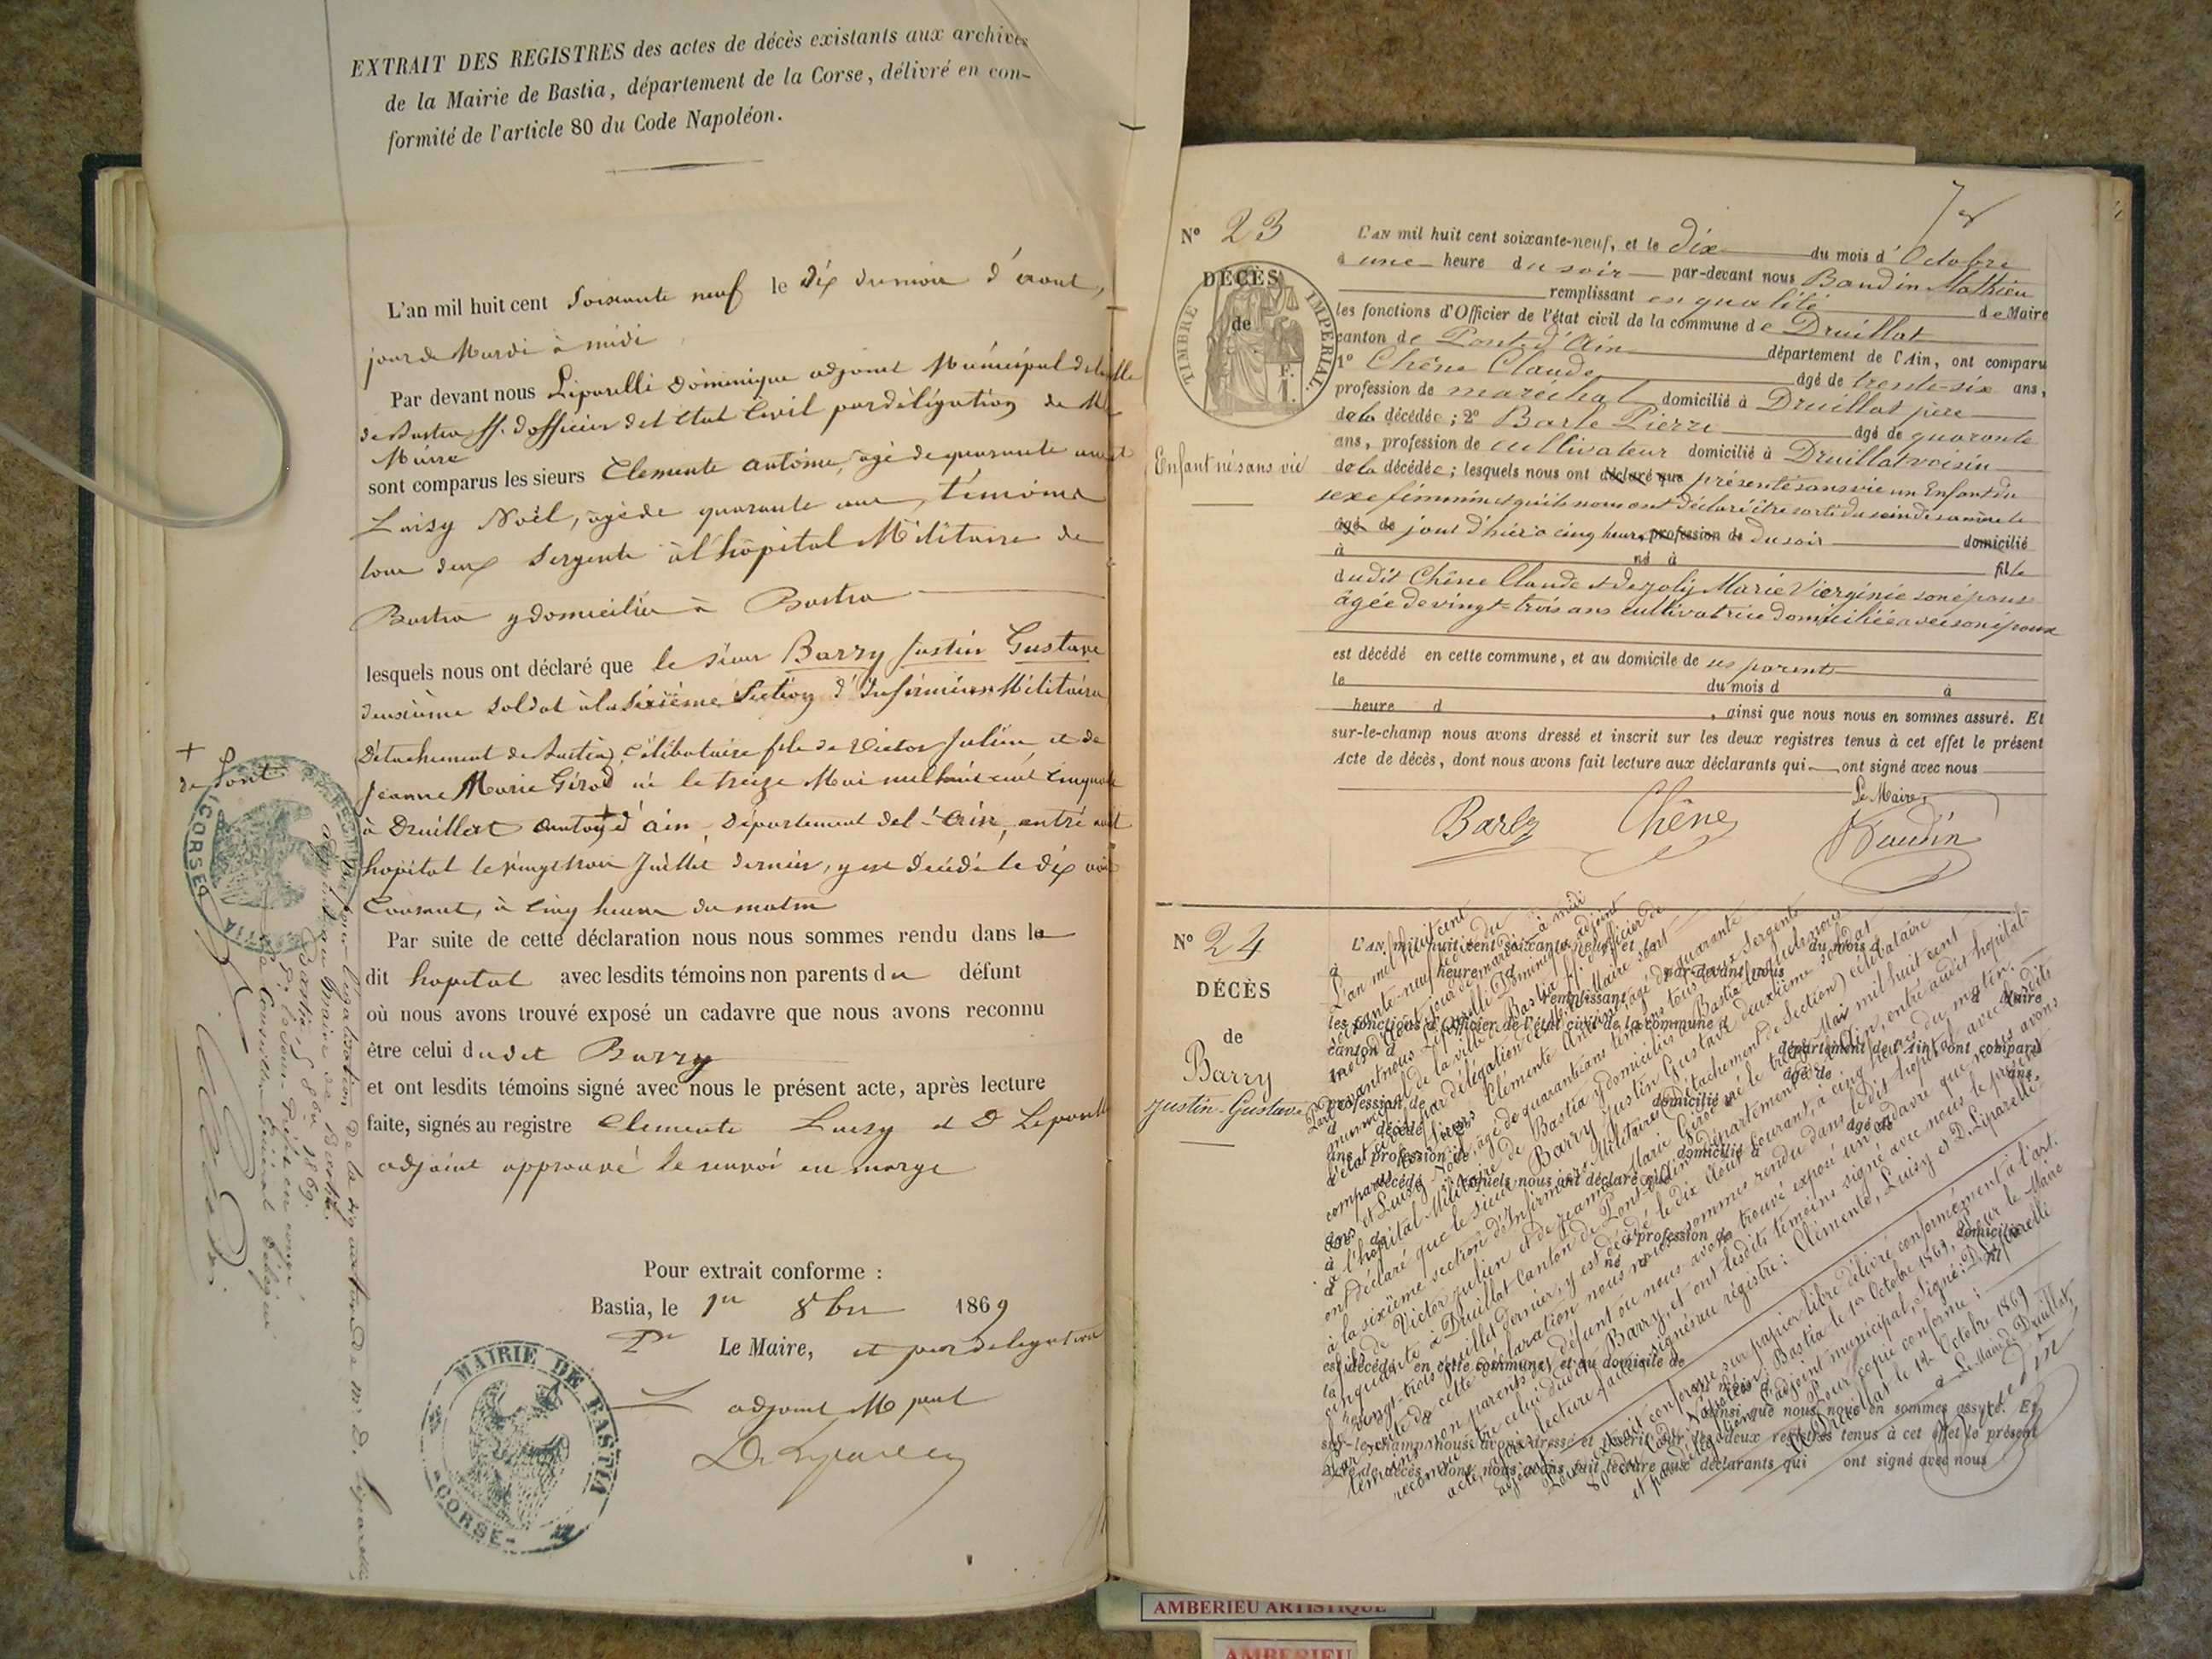 EXTRAIT DES REGISTRES des actes de décès existants aux archives
de la Mairie de Bastia, département de la Corse, délivré en con-
formité de l'article 80 du Code Napoléon.
L'an mil huit cent Soixante neuf le dix du mois d'aout,
jour de Mardi à midi
Par devant nous Liparelli Dominique adjoint Municipal de la ville
de Bastia ff. d'officier de l'Etat Civil par délégation de Mr le
Maire
sont comparus les sieurs Clemente antoine, agé de quarante ans et
Luisy Noël, agé de quarante ans, témoins
tous deux Sergents à l'hôpital Militaire de
Bastia y domiciliés à Bastia
lesquels nous ont déclaré que le Sieur Barry Justin Gustave
deuxième Soldat à la Sixième Section d'Infirmiers Militaires
Détachement de Bastia, célibataire fils de Victor Julien et de
Jeanne Marie Girod né le treize Mai mil huit cent cinquante
à Druillat Canton + d'ain, Département de l'Ain, entré audit
hopital le vingt trois Juillet dernier, y est décédé le dix août
Courant, à Cinq heures du matin
Par suite de cette déclaration nous nous sommes rendu dans le
dit hopital avec lesdits témoins non parents du défunt
où nous avons trouvé exposé un cadavre que nous avons reconnu
être celui dudit Barry
et ont lesdits témoins signé avec nous le présent acte, après lecture
faite, signés au registre Clemente Luisy et D Liparelli
adjoint approuvé le renvoi en marge
Pour extrait conforme :
Bastia, le 1er 8bre 1869
Pr Le Maire, et par delegation
L adjoint Mpal
D. Liparelli
MAIRIE DE BASTIA
CORSE
+
de Pont
CORSE
Vu pour légalisation de la signature de Mr D. Liparelli
adjoint au Maire de Bastia.
Bastia, 8bre 1869.
P. le Préfet en congé
Le Conseiller Général délégué
Nº 23
DÉCÈS
de
TIMBRE IMPERIAL
Enfant né sans vie
L'AN mil huit cent soixante-neuf, et le dix du mois d'Octobre
à une heure du soir par-devant nous Baudin Mathieu
remplissant en qualité de Maire
les fonctions d'Officier de l'état civil de la commune de Druillat
canton de Pont d'Ain département de l'Ain, ont comparu
1º Chêne Claude agé de trente-six ans,
profession de maréchal domicilié à Druillat père
de la décédée ; 2º Barle Pierre agé de quarante
ans, profession de cultivateur domicilié à Druillat voisin
de la décédée ; lesquels nous ont déclaré que présenté sans vie un Enfant du
sexe féminin et qu'ils nous ont déclaré être sorti du sein de sa mère le
agé de jour d'hier à cinq heures profession de du soir domicilié
à né à fille
dudit Chêne Claude et de Joly Marie Vierginie son épouse
âgée de vingt-trois ans cultivatrice domiciliée avec son époux
est décédé en cette commune, et au domicile de ses parents
le du mois d à
heure d , ainsi que nous nous en sommes assuré. Et
sur-le-champ nous avons dressé et inscrit sur les deux registres tenus à cet effet le présent
Acte de décès, dont nous avons fait lecture aux déclarants qui ont signé avec nous
Le Maire,
Barle Chêne Baudin
Nº 24
DÉCÈS
de
Barry
Justin-Gustave
L'an mil huit cent
soixante-neuf le dix du
mois d'aout jour de mardi à midi
Par devant nous Liparelli Dominique adjoint
municipal de la ville de Bastia ff. d'officier de
l'état civil par délégation de Mr le Maire sont
comparus les sieurs Clémente Antoine agé de quarante
ans et Luisy Noël, agé de quarante ans témoins tous deux Sergents
à l'hopital Militaire de Bastia y domiciliés à Bastia lesquels nous
ont déclaré que le sieur Barry Justin Gustave deuxième soldat
à la sixième section d'Infirmiers Militaires (Détachement de Section) célibataire
fils de Victor Julien et de Jeanne Marie Girod né le treize Mai mil huit cent
cinquante à Druillat Canton de Pont d'Ain Département de l'Ain, entré audit hopital
le vingt-trois Juillet dernier, y est décédé le dix Aout Courant, à cinq heures du matin.
Par suite de cette déclaration nous nous sommes rendu dans le dit hopital avec lesdits
témoins non parents du défunt où nous avons trouvé exposé un cadavre que nous avons
reconnu être celui dudit Barry, et ont lesdits témoins signé avec nous le présent
acte, après lecture faite, signés au registre : Clémente, Luisy et D. Liparelli.
Pour extrait conforme sur papier libre délivré conformément à l'art.
80 du Code Napoléon, Bastia le 1er Octobre 1869, Pour le Maire
et par délégation l'adjoint municipal, Signé: D. Liparelli
Pour copie conforme :
à Druillat le Octobre 1869
Le Maire de Druillat,
Baudin
AMBERIEU ARTISTIQUE
AMBERIEU